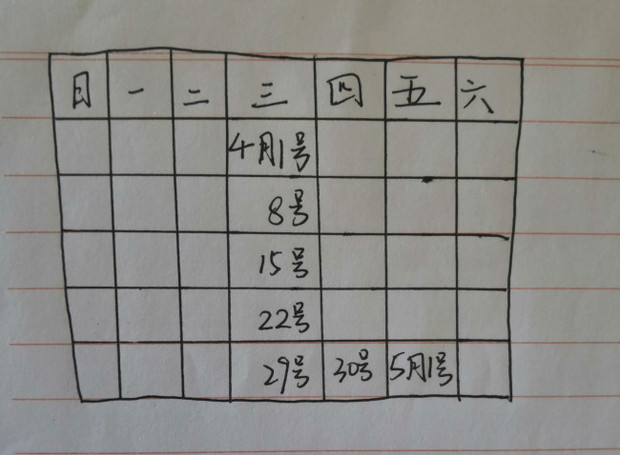 日 一 二 三 四 五 六
4月1号
8号
15号
22号
29号 30号 5月1号